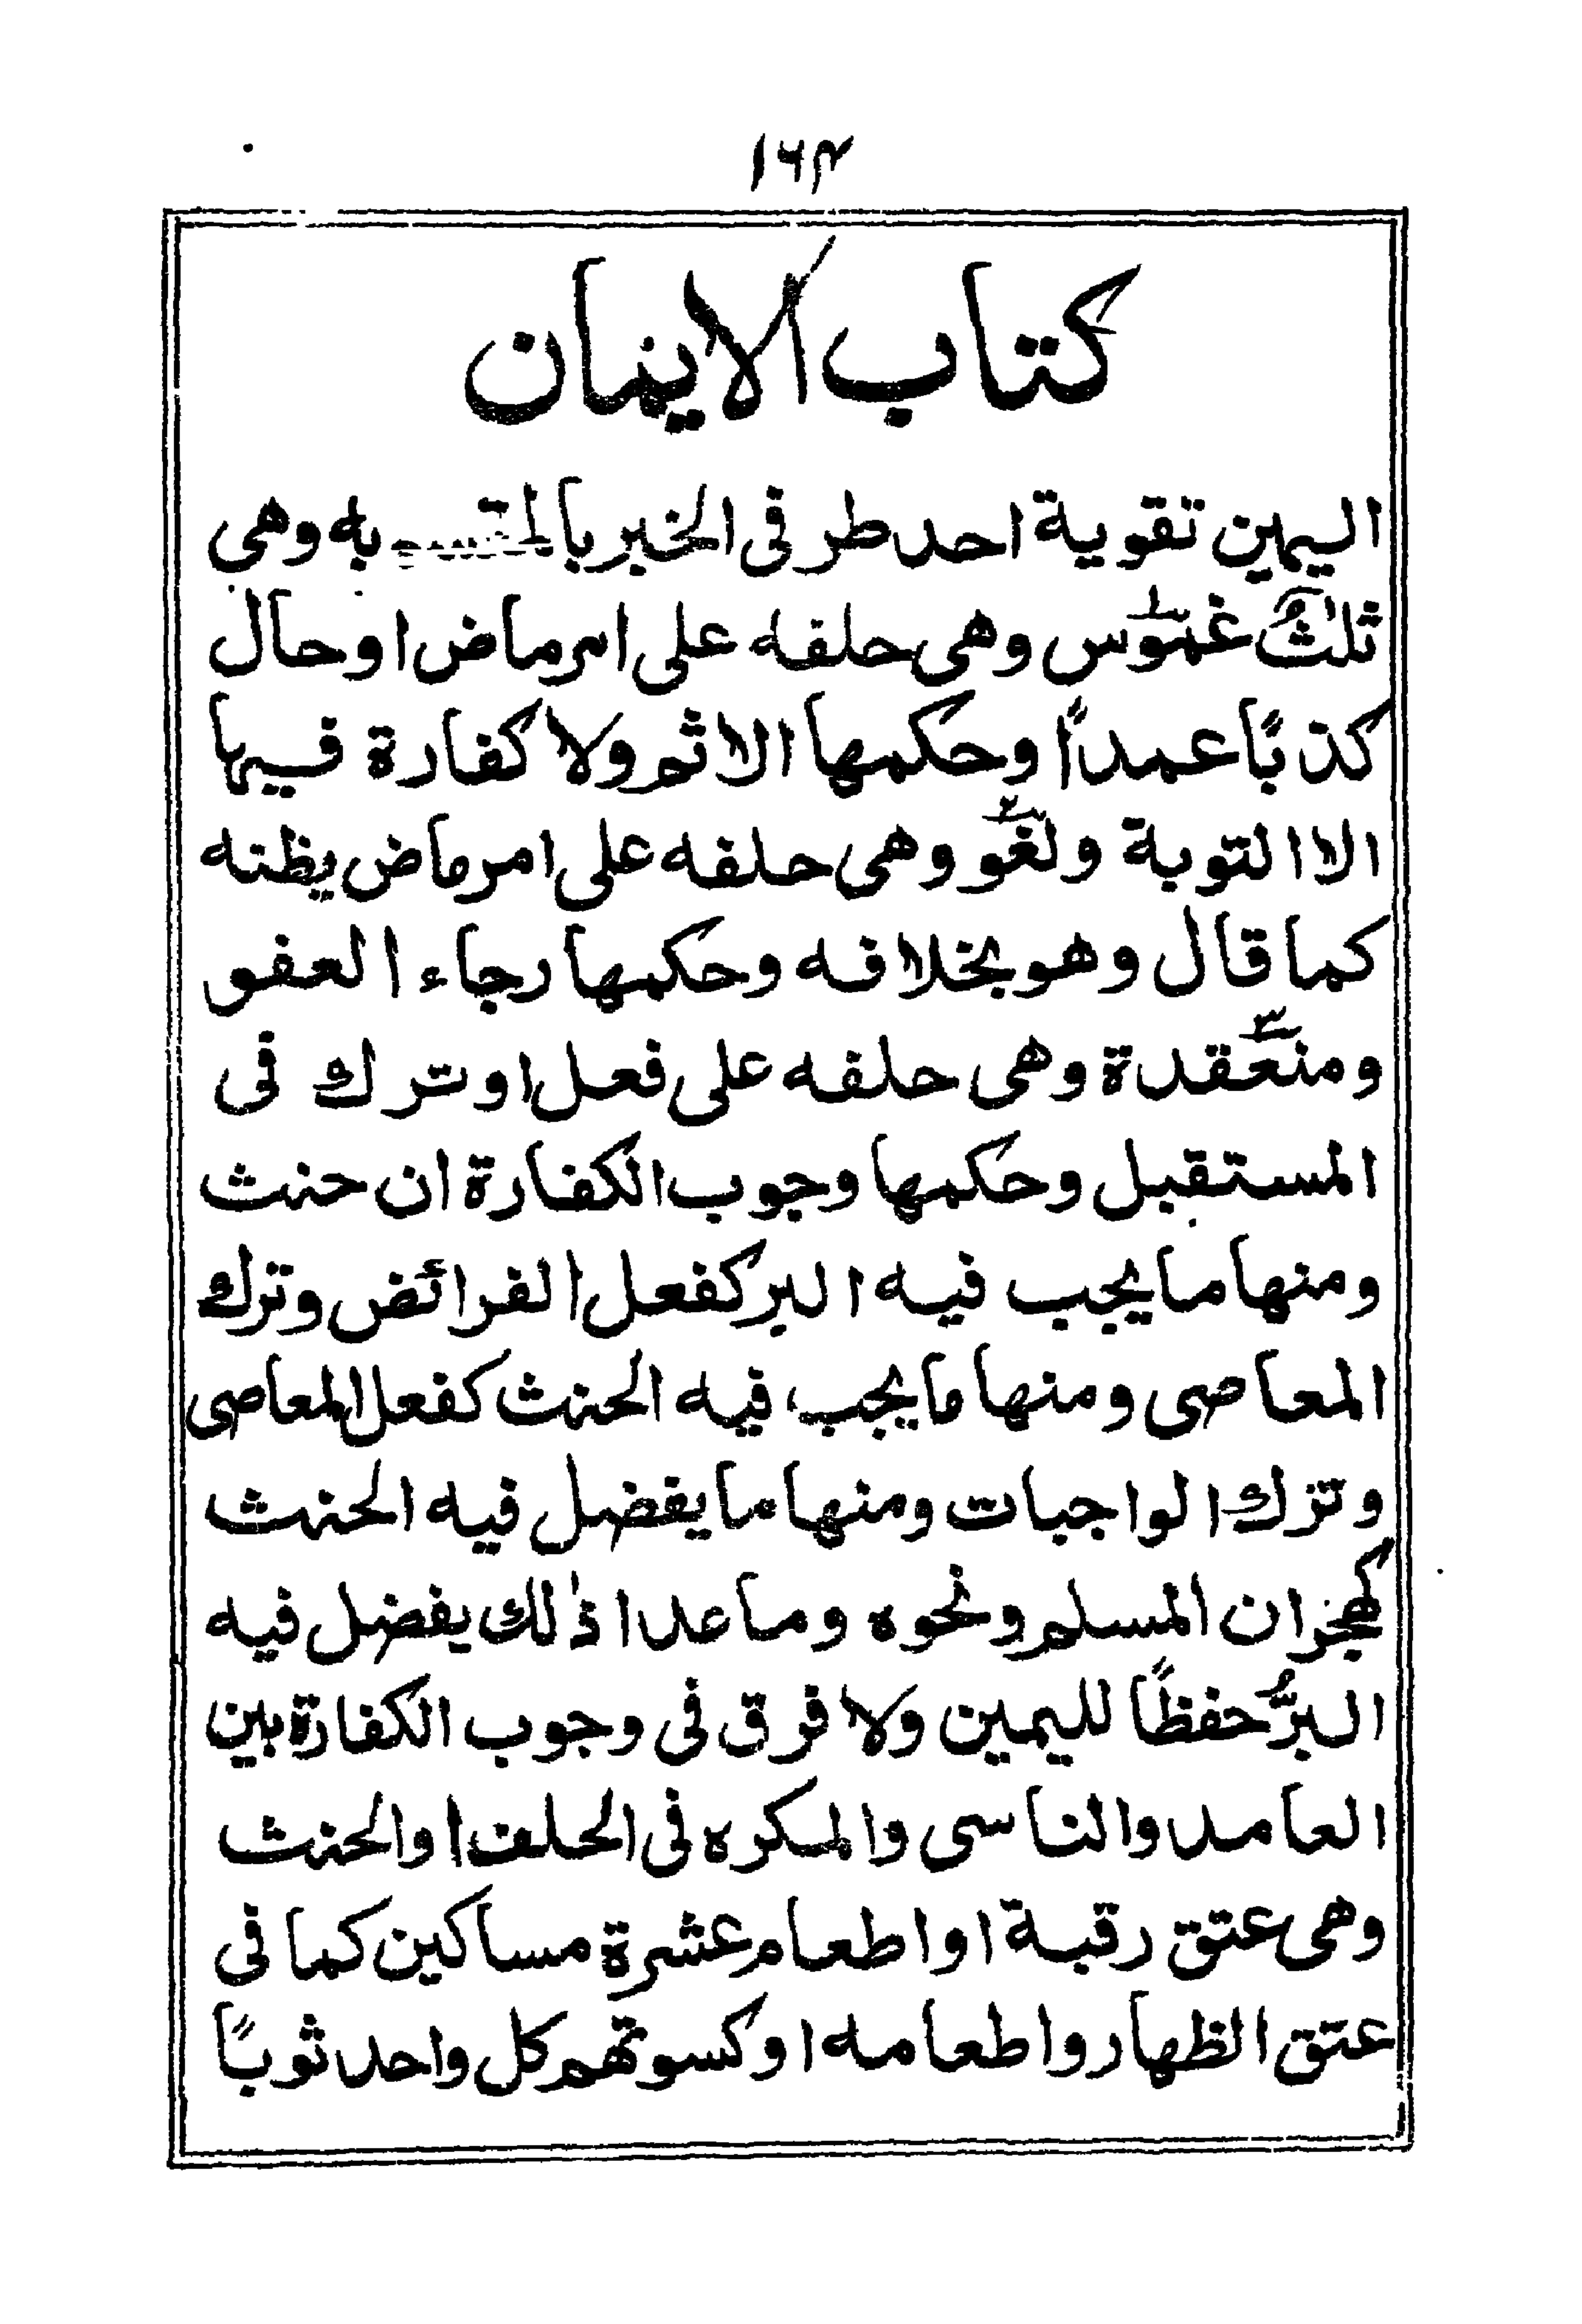 ۱۶۳
كتاب الايمان
اليمين تقوية احد طرفى الخبر بالمقسم به وهى
ثلثٌ غموس وهى حلفه على امر ماض او حال
كذبًا عمدًا وحكمها الاثم ولا كفارة فيها
الا التوبة ولغو وهى حلفه على امر ماض يظنه
كما قال وهو بخلافه وحكمها رجاء العفو
ومنعقدة وهى حلفه على فعل او ترك فى
المستقبل وحكمها وجوب الكفارة ان حنث
ومنها ما يجب فيه البر كفعل الفرائض وترك
المعاصى ومنها ما يجب فيه الحنث كفعل المعاصى
وترك الواجبات ومنها ما يفضل فيه الحنث
كهجران المسلم ونحوه وما عدا ذٰلك يفضل فيه
البرُّ حفظًا لليمين ولا فرق فى وجوب الكفارة بين
العامد والناسى والمكره فى الحلف او الحنث
وهى عتق رقبة او اطعام عشرة مساكين كما فى
عتق الظهار واطعامه او كسوتهم كل واحد ثوبًا